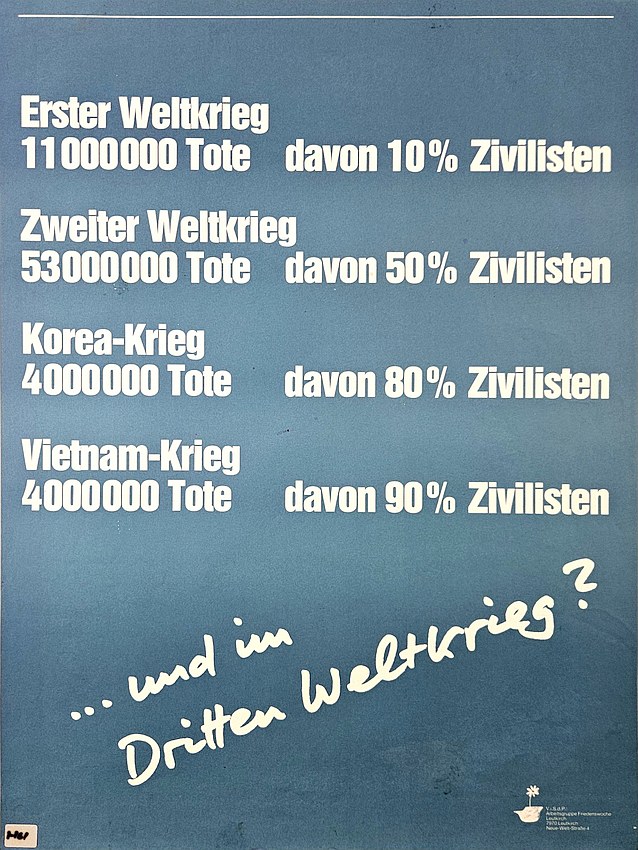 Erster Weltkrieg
11000000 Tote davon 10% Zivilisten
Zweiter Weltkrieg
53000000 Tote davon 50% Zivilisten
Korea-Krieg
4000000 Tote davon 80% Zivilisten
Vietnam-Krieg
4000000 Tote davon 90% Zivilisten
... und im
Dritten Weltkrieg?
V.i.S.d.P.:
Arbeitsgruppe Friedenswoche
Leutkirch
7970 Leutkirch
Neue-Welt-Straße 4